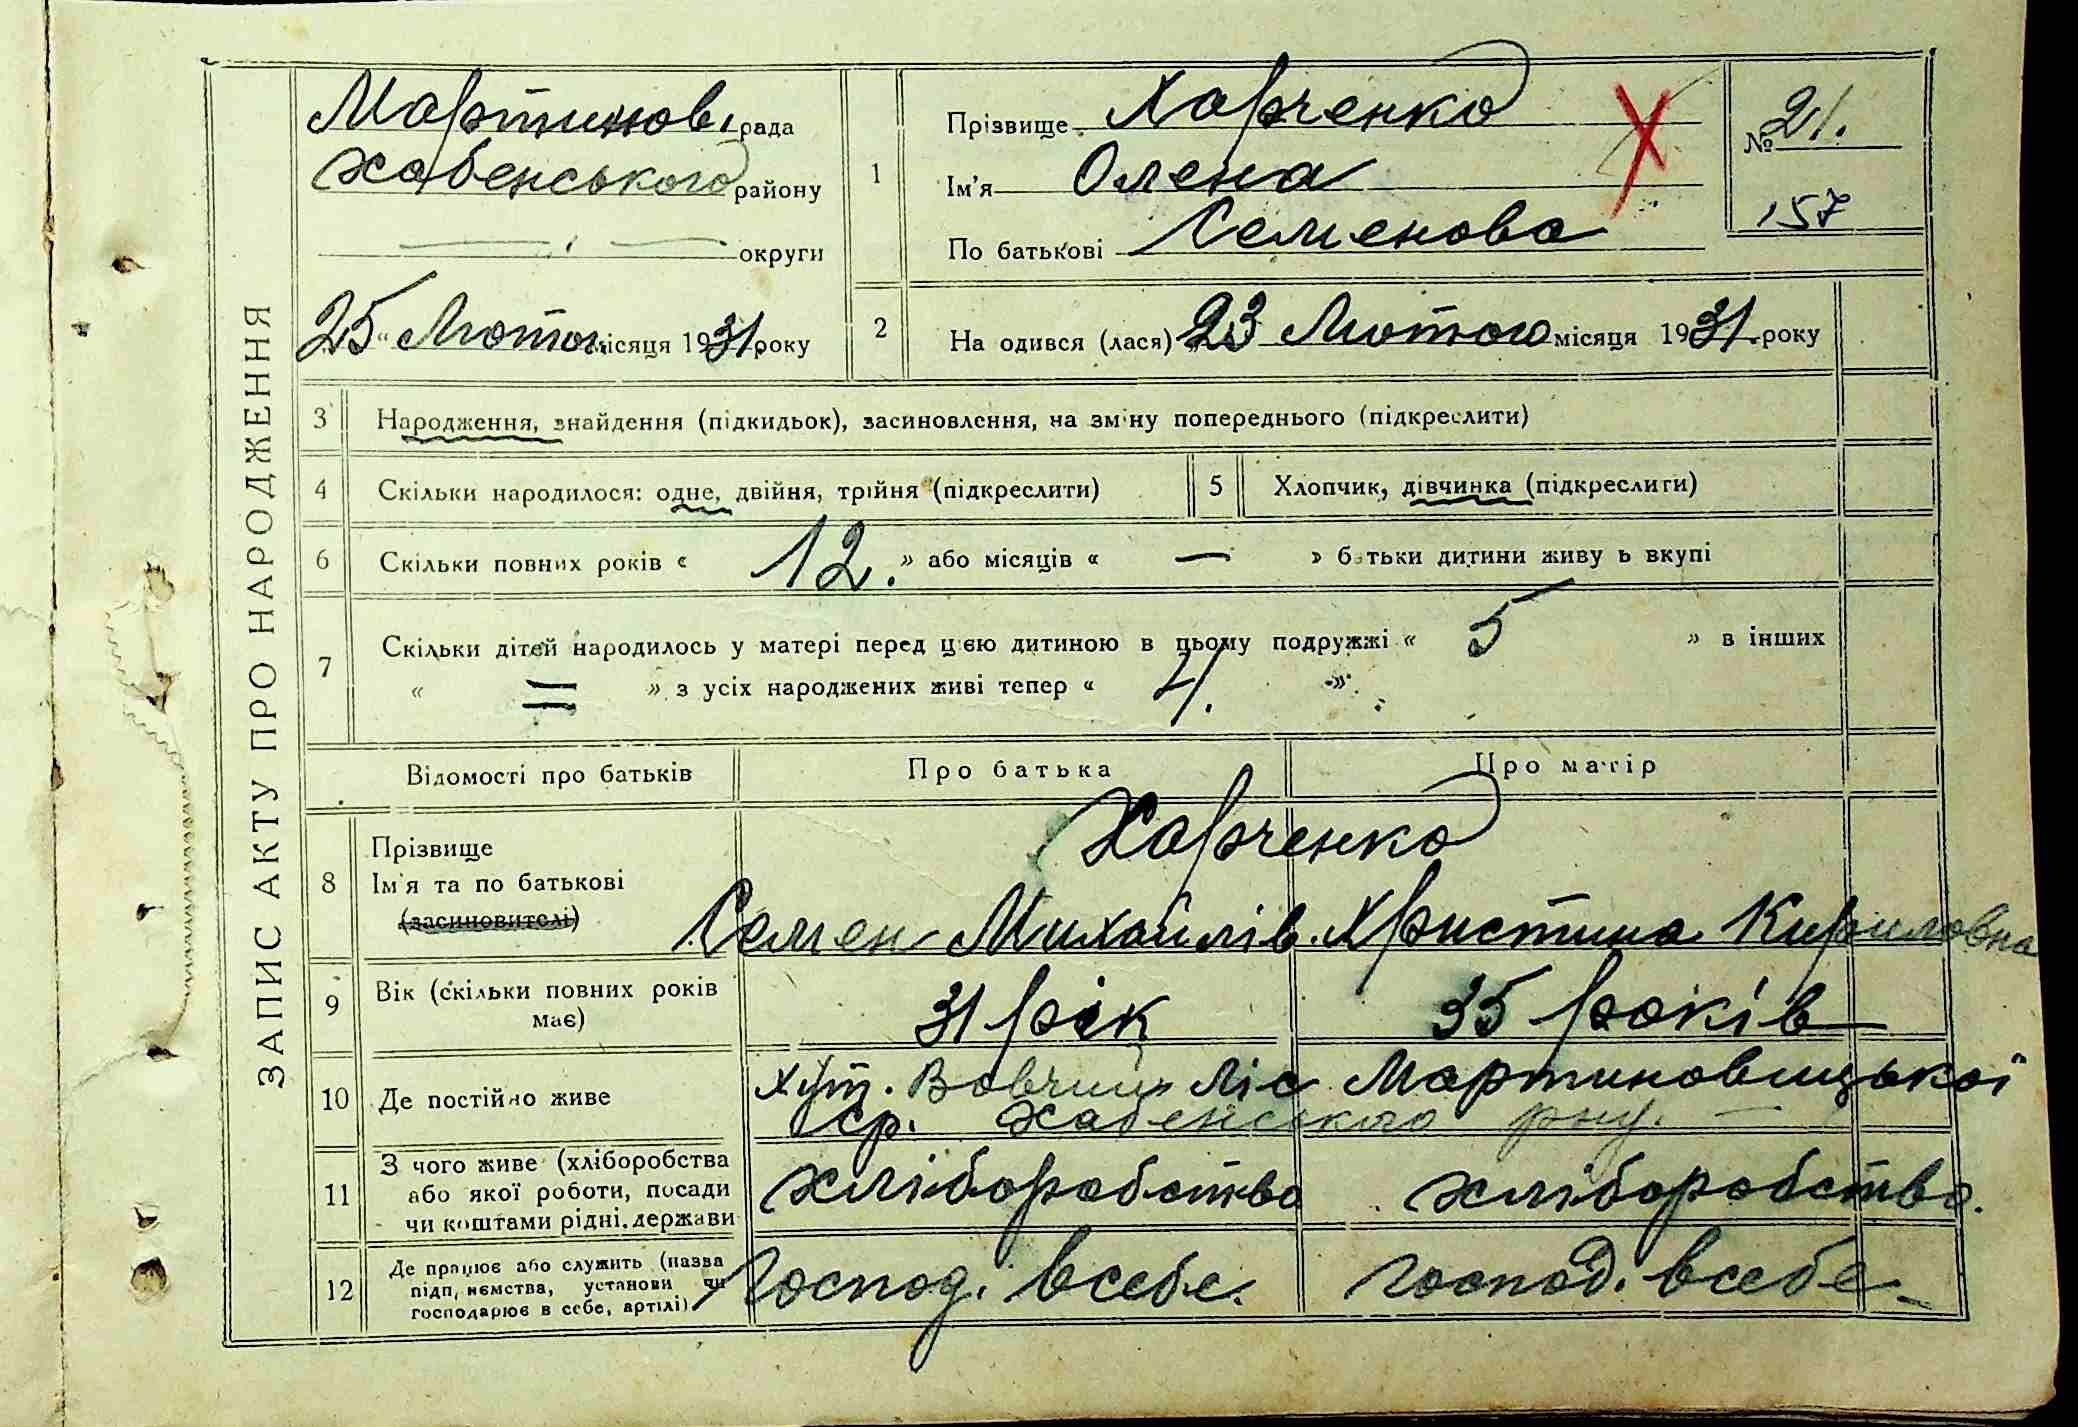 ЗАПИС АКТУ ПРО НАРОДЖЕННЯ
Мартинов. рада
Хабенського району
округи
25 " Лютого місяця 1931 року
1 Прізвище Харченко
Ім'я Олена
По батькові Семенова
№ 21.
157
2 На одився (лася) " 23 Лютого місяця 1931 року
3 Народження, знайдення (підкидьок), засиновлення, на зміну попереднього (підкреслити)
4 Скільки народилося: одне, двійня, трійня (підкреслити) 5 Хлопчик, дівчинка (підкреслити)
6 Скільки повних років « 12. » або місяців « — » батьки дитини живу ь вкупі
7 Скільки дітей народилось у матері перед цією дитиною в цьому подружжі « 5 » в інших
« = » з усіх народжених живі тепер « 4. »
Відомості про батьків Про батька Про матір
8 Прізвище Харченко
Ім'я та по батькові
(засиновителі) Семен Михайлів. Христина Кириловна
9 Вік (скільки повних років має) 31 рік 35 років
10 Де постійно живе хут. Вовчий Ліс Мартиновицької
ср. Хабенського рну.
11 З чого живе (хліборобства
або якої роботи, посади
чи коштами рідні, держави хліборобство хліборобство.
12 Де працює або служить (назва
підп, иємства, установи чи
господарює в себе, артілі) господ. в себе. господ. в себе